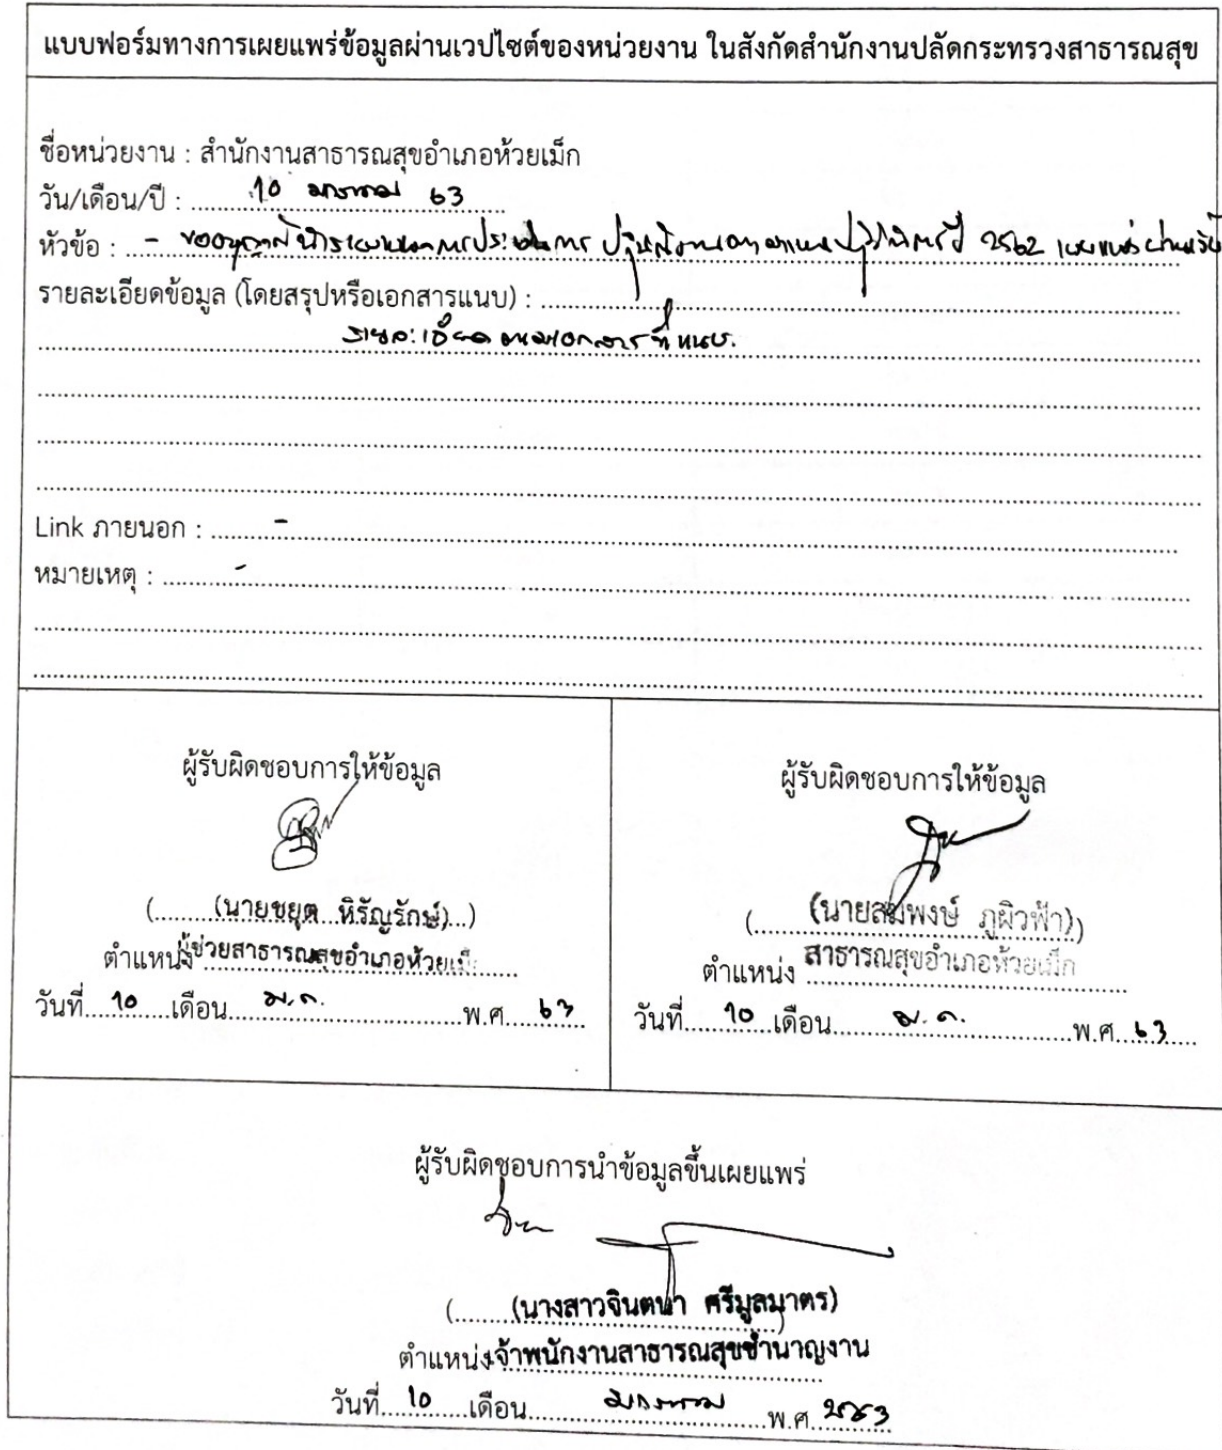 แบบฟอร์มทางการเผยแพร่ข้อมูลผ่านเวปไซต์ของหน่วยงาน ในสังกัดสำนักงานปลัดกระทรวงสาธารณสุข
ชื่อหน่วยงาน : สำนักงานสาธารณสุขอำเภอห้วยเม็ก
วัน/เดือน/ปี : 10 มกราคม 63
หัวข้อ : - ขออนุญาตนำรายงานผลการประเมินการ ปฏิบัติงานตามแผนปฏิบัติการปี 2562 เผยแพร่ผ่านเว็บ
รายละเอียดข้อมูล (โดยสรุปหรือเอกสารแนบ) :
รายละเอียดตามเอกสารที่แนบ.
Link ภายนอก : -
หมายเหตุ : -
ผู้รับผิดชอบการให้ข้อมูล
(นายชยุต หิรัญรักษ์)
ตำแหน่ง ผู้ช่วยสาธารณสุขอำเภอห้วยเม็ก
วันที่ 10 เดือน ม.ค. พ.ศ. 63
ผู้รับผิดชอบการให้ข้อมูล
(นายสมพงษ์ ภูผิวฟ้า)
ตำแหน่ง สาธารณสุขอำเภอห้วยเม็ก
วันที่ 10 เดือน ม.ค. พ.ศ. 63
ผู้รับผิดชอบการนำข้อมูลขึ้นเผยแพร่
(นางสาวจินตนา ศรีมูลมาตร)
ตำแหน่ง เจ้าพนักงานสาธารณสุขชำนาญงาน
วันที่ 10 เดือน มกราคม พ.ศ. 2563